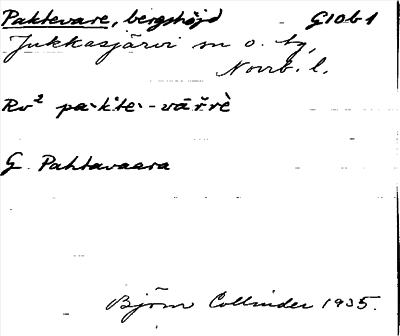 Paktevare, bergshöjd G10b1
Jukkasjärvi sn o. tg,
Norrb. l.
Rv² pa·k'te·-vāřrè
G. Pahtavaara
Björn Collinder 1935.